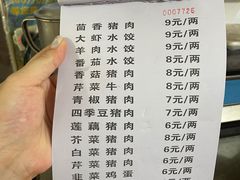 0007726
茴香猪肉 9元/两
大虾水饺 9元/两
羊肉水饺 9元/两
番茄水饺 8元/两
香菇猪肉 8元/两
芹菜牛肉 8元/两
青椒猪肉 7元/两
四季豆猪肉 7元/两
莲藕猪肉 6元/两
芥菜猪肉 6元/两
白菜猪肉 6元/两
芹菜猪肉 6元/两
韭菜鸡蛋 6元/两